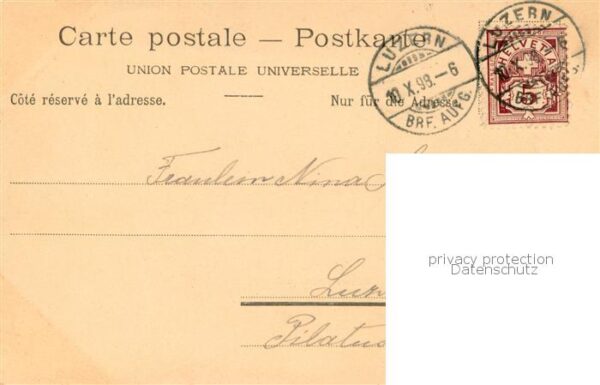 Carte postale — Postkarte
UNION POSTALE UNIVERSELLE
Côté réservé à l'adresse. Nur für die Adresse.
LUZERN
10.X.98.-6
BRF. AUFG.
LUZERN
HELVETIA
5
Fräulein Nina
privacy protection
Datenschutz
Luz
Pilatus